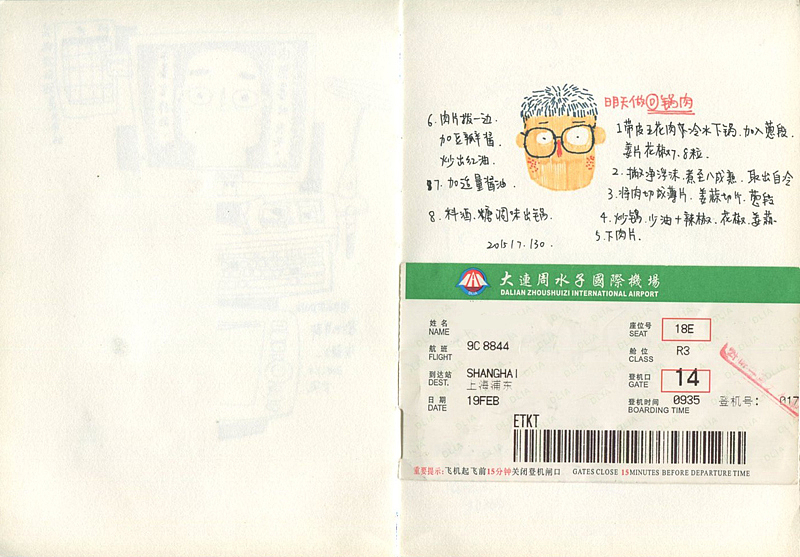 明天做回锅肉
1.带皮五花肉冷水下锅.加入葱段.
姜片花椒7.8粒.
2.撇净浮沫.煮至八成熟.取出自冷
3.将肉切成薄片.姜蒜切片.葱段
4.炒锅.少油+辣椒.花椒.姜蒜
5.下肉片.
6.肉片拨一边.
加豆瓣酱.
炒出红油.
7.加适量酱油.
8.料酒.糖调味出锅.
2015.1.30.
大連周水子國際機場
DALIAN ZHOUSHUIZI INTERNATIONAL AIRPORT
姓名
NAME
座位号 18E
SEAT
航班 9C8844
FLIGHT
舱位 R3
CLASS
到达站 SHANGHAI
DEST. 上海浦东
登机口 14
GATE
日期 19FEB
DATE
登机时间 0935 登机号: 017
BOARDING TIME
ETKT
重要提示:飞机起飞前15分钟关闭登机闸口 GATES CLOSE 15MINUTES BEFORE DEPARTURE TIME